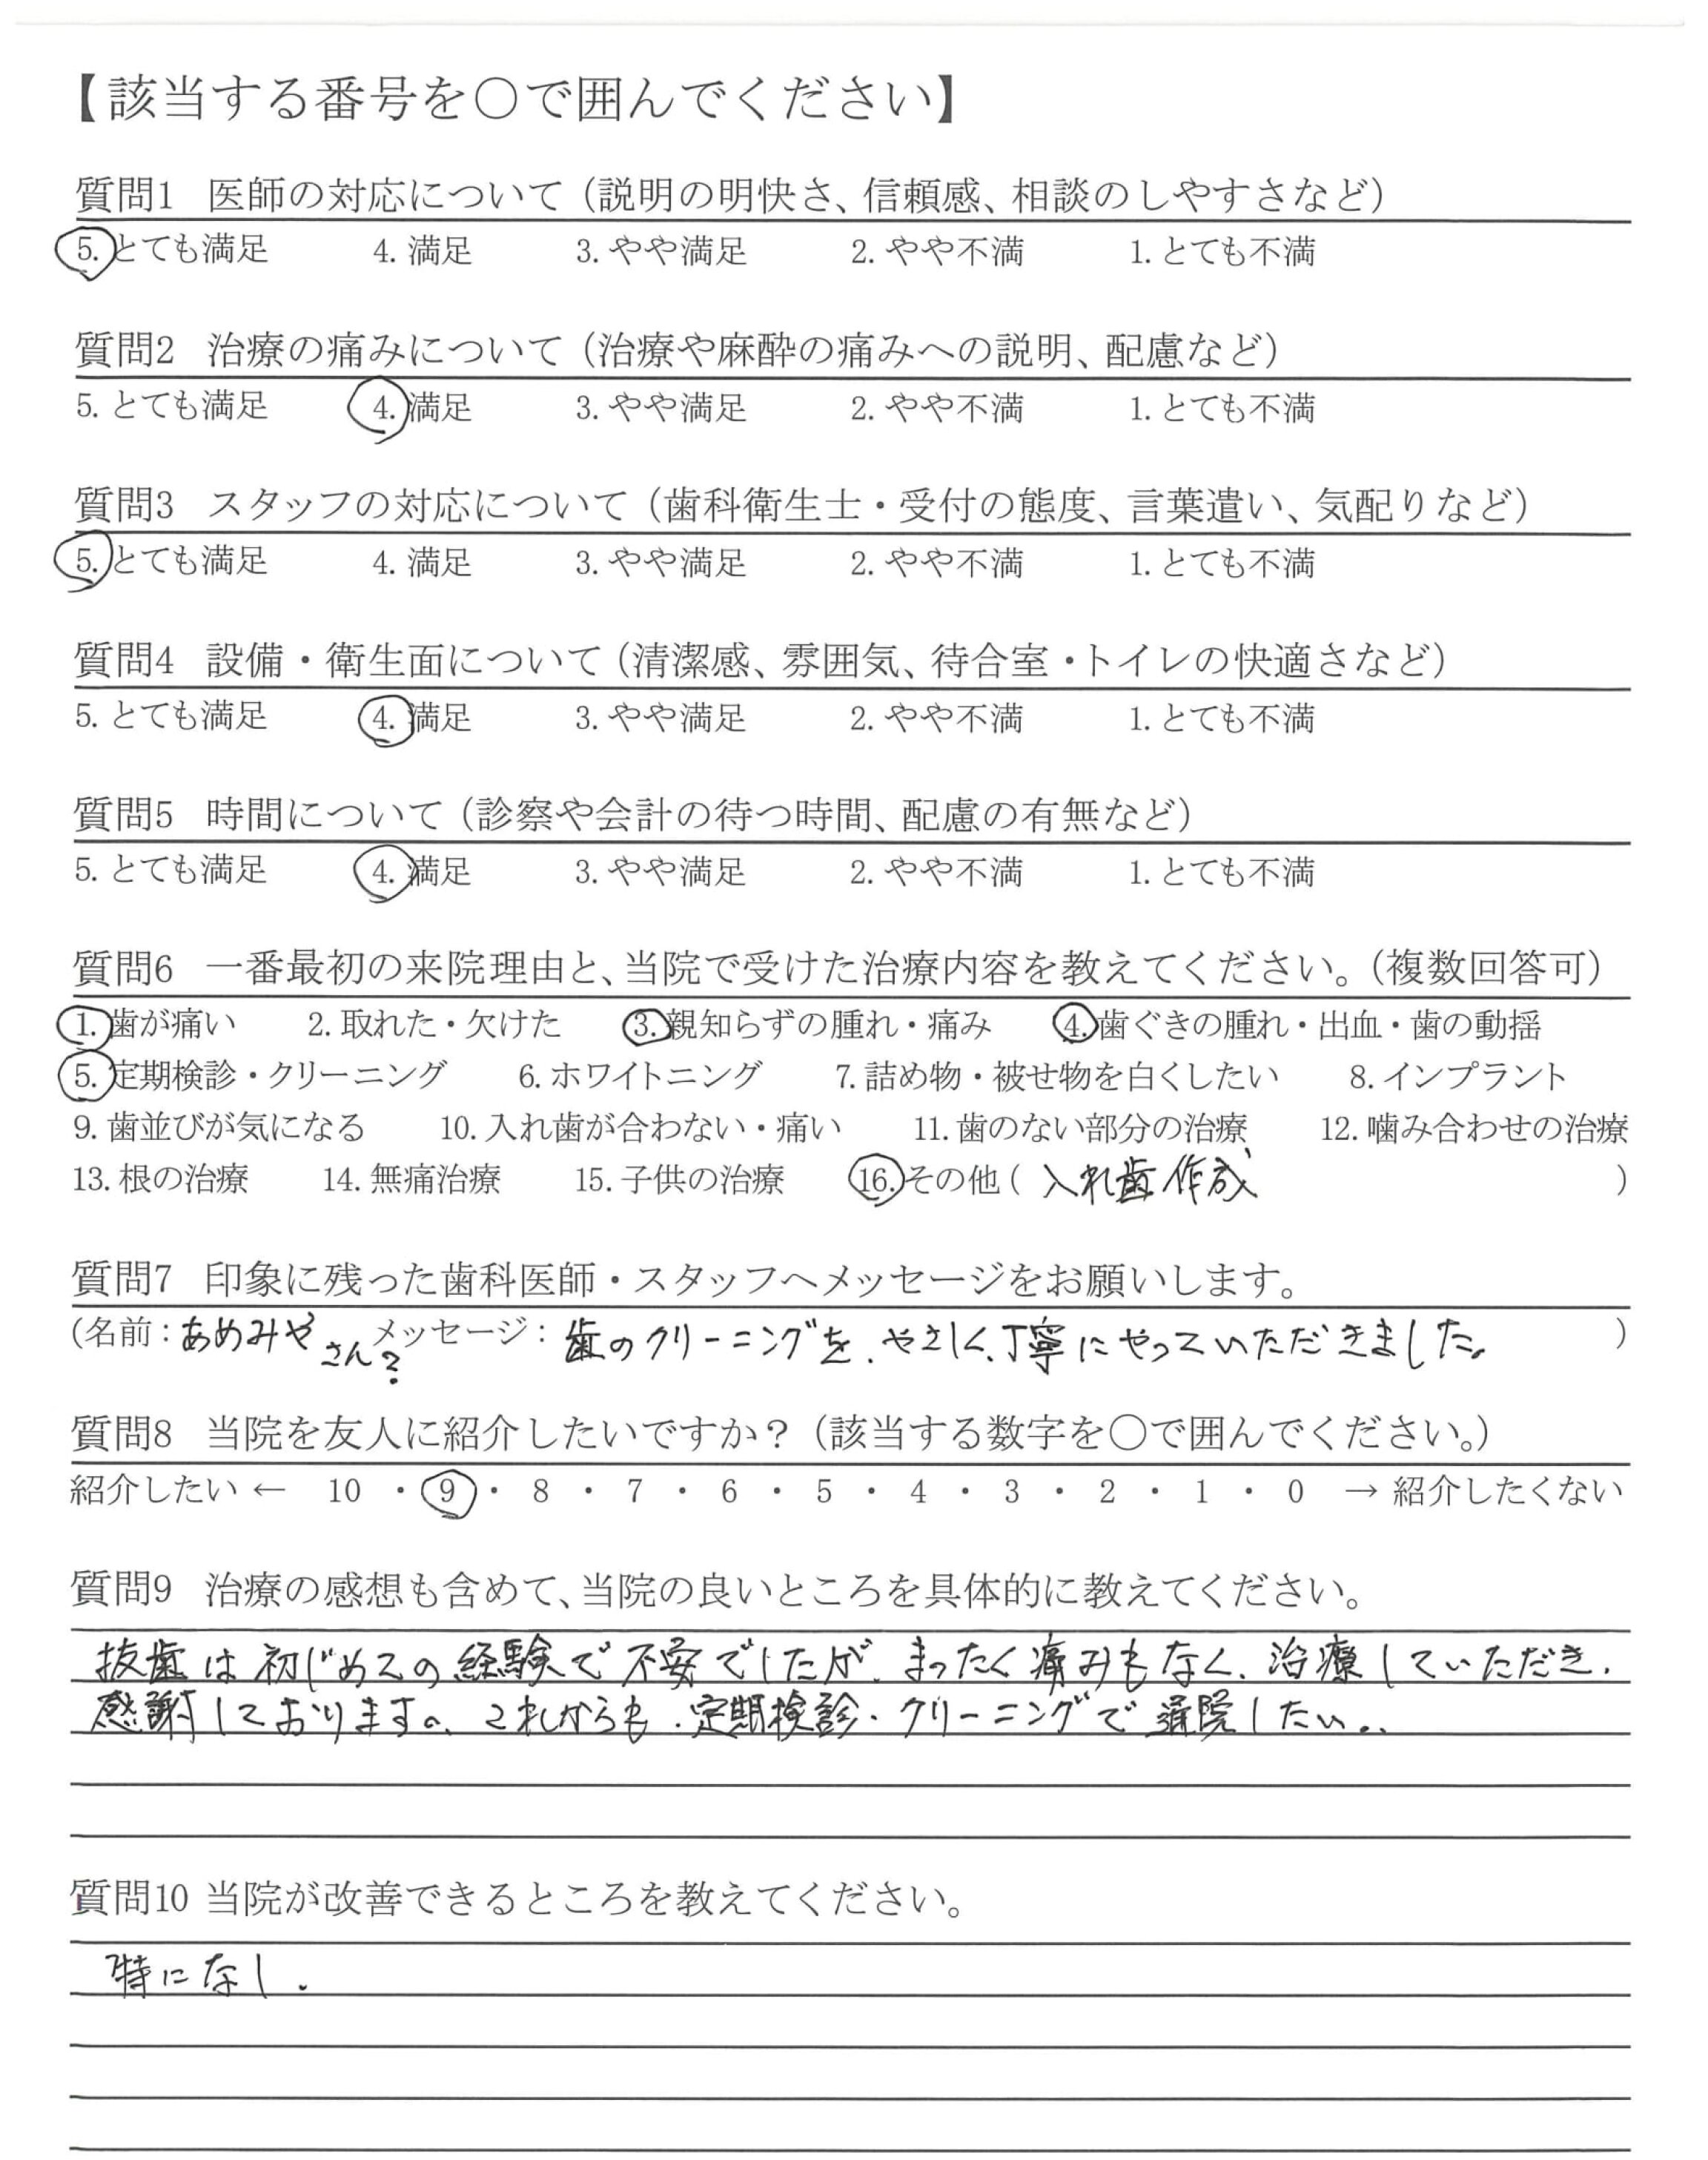 【該当する番号を○で囲んでください】
質問1 医師の対応について（説明の明快さ、信頼感、相談のしやすさなど）
5. とても満足 4. 満足 3. やや満足 2. やや不満 1. とても不満
質問2 治療の痛みについて（治療や麻酔の痛みへの説明、配慮など）
5. とても満足 4. 満足 3. やや満足 2. やや不満 1. とても不満
質問3 スタッフの対応について（歯科衛生士・受付の態度、言葉遣い、気配りなど）
5. とても満足 4. 満足 3. やや満足 2. やや不満 1. とても不満
質問4 設備・衛生面について（清潔感、雰囲気、待合室・トイレの快適さなど）
5. とても満足 4. 満足 3. やや満足 2. やや不満 1. とても不満
質問5 時間について（診察や会計の待つ時間、配慮の有無など）
5. とても満足 4. 満足 3. やや満足 2. やや不満 1. とても不満
質問6 一番最初の来院理由と、当院で受けた治療内容を教えてください。（複数回答可）
1. 歯が痛い 2. 取れた・欠けた 3. 親知らずの腫れ・痛み 4. 歯ぐきの腫れ・出血・歯の動揺
5. 定期検診・クリーニング 6. ホワイトニング 7. 詰め物・被せ物を白くしたい 8. インプラント
9. 歯並びが気になる 10. 入れ歯が合わない・痛い 11. 歯のない部分の治療 12. 噛み合わせの治療
13. 根の治療 14. 無痛治療 15. 子供の治療 16. その他（入れ歯作成）
質問7 印象に残った歯科医師・スタッフへメッセージをお願いします。
（名前：あめみやさん? メッセージ：歯のクリーニングを、やさしく、丁寧にやっていただきました。）
質問8 当院を友人に紹介したいですか？（該当する数字を○で囲んでください。）
紹介したい ← 10 ・ 9 ・ 8 ・ 7 ・ 6 ・ 5 ・ 4 ・ 3 ・ 2 ・ 1 ・ 0 → 紹介したくない
質問9 治療の感想も含めて、当院の良いところを具体的に教えてください。
抜歯は初じめての経験で不安でしたが、まったく痛みもなく、治療していただき、
感謝しております。これからも、定期検診・クリーニングで通院したい。
質問10 当院が改善できるところを教えてください。
特になし.